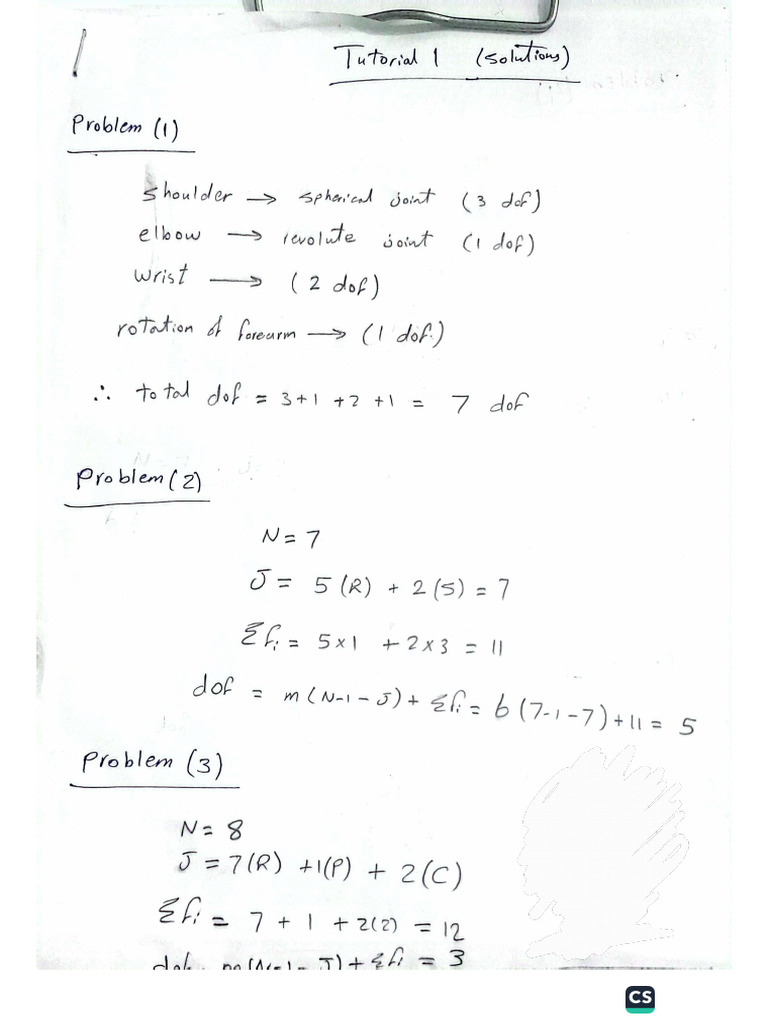 Tutorial 1 (solutions)
Problem (1)
shoulder → spherical joint (3 dof)
elbow → revolute joint (1 dof)
wrist → (2 dof)
rotation of forearm → (1 dof)
∴ total dof = 3+1 +2 +1 = 7 dof
Problem (2)
N = 7
J = 5 (R) + 2 (S) = 7
Σfi = 5×1 + 2×3 = 11
dof = m(N-1-J) + Σfi = 6(7-1-7)+11 = 5
Problem (3)
N = 8
J = 7(R) +1(P) + 2(C)
Σfi = 7 + 1 + 2(2) = 12
dof m(N-1-J)+Σfi = 3
CS